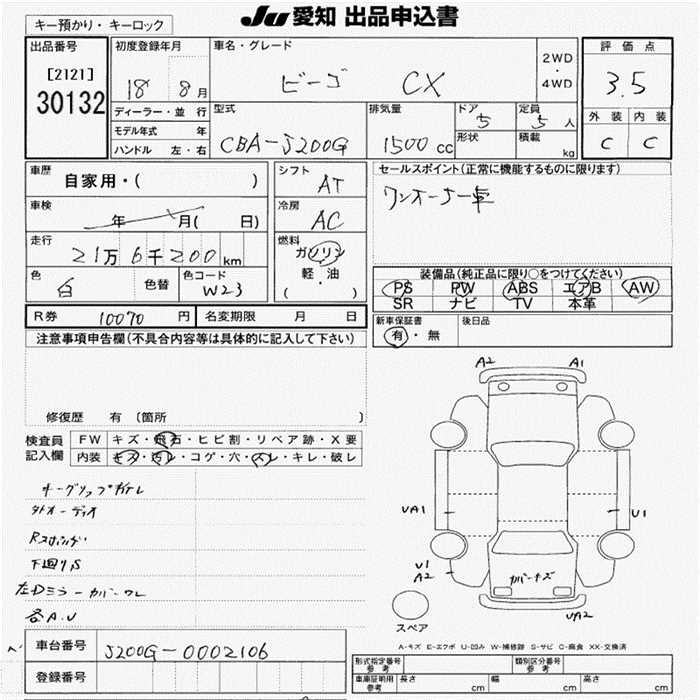 JU 愛知 出品申込書
キー預かり・キーロック
出品番号
[2121]
30132
初度登録年月
18 8月
ディーラー・並 行
モデル年式 年
ハンドル 左・右
車名・グレード
ビーゴ CX
2WD
・
4WD
型式
CBA-J200G
排気量
1500cc
ドア
5
形状
定員
5人
積載
kg
評価点
3.5
外装 内装
C C
車歴
自家用・( )
車検
年 月( 日)
走行
21万6千200km
色
白
色替
色コード
W23
シフト
AT
冷房
AC
燃料
ガソリン
軽・油
( )
セールスポイント(正常に機能するものに限ります)
ワンオーナー車
装備品(純正品に限り○をつけてください)
PS PW ABS エアB AW
SR ナビ TV 本革
R券 10070円
名変期限 月 日
新車保証書
有・無
後日品
注意事項申告欄(不具合内容等は具体的に記入して下さい)
修復歴 有 〔箇所 〕
検査員
記入欄
FW キズ・飛石・ヒビ割・リペア跡・X要
内装 キズ・汚レ・コゲ・穴・スレ・キレ・破レ
外オーディオ
下廻りS
左Dミラーカバーワレ
各A.U
A2 A1
UA1
U1
U1
A2
カバーキズ
UA2
スペア
A-キズ E-エクボ U-凹み W-補修跡 S-サビ C-腐食 XX-交換済
車台番号
J200G-0002106
登録番号
形式指定番号
参考
類別区分番号
参考
車庫証明用
参考
長さ cm
幅 cm
高さ cm